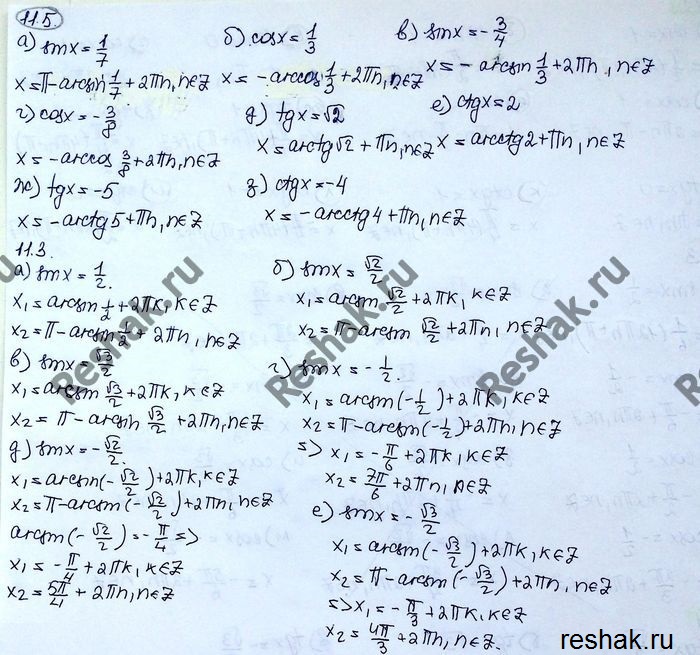 11.5.
а) sinx = 1/7
x = π - arcsin 1/7 + 2πn, n∈Z
б) cosx = 1/3
x = - arccos 1/3 + 2πn, n∈Z
в) sinx = - 3/4
x = - arcsin 1/3 + 2πn, n∈Z
г) cosx = - 3/8
x = - arccos 3/8 + 2πn, n∈Z
д) tgx = √2
x = arctg√2 + πn, n∈Z
е) ctgx = 2
x = arcctg2 + πn, n∈Z
ж) tgx = -5
x = - arctg5 + πn, n∈Z
з) ctgx = -4
x = - arcctg4 + πn, n∈Z
11.3.
а) sinx = 1/2.
x₁ = arcsin 1/2 + 2πk, k∈Z
x₂ = π - arcsin 1/2 + 2πn, n∈Z
б) sinx = √2/2
x₁ = arcsin √2/2 + 2πk, k∈Z
x₂ = π - arcsin √2/2 + 2πn, n∈Z
в) sinx = √3/2
x₁ = arcsin √3/2 + 2πk, k∈Z
x₂ = π - arcsin √3/2 + 2πn, n∈Z
г) sinx = - 1/2.
x₁ = arcsin(- 1/2) + 2πk, k∈Z
x₂ = π - arcsin(- 1/2) + 2πn, n∈Z
=> x₁ = - π/6 + 2πk, k∈Z
x₂ = 7π/6 + 2πn, n∈Z
д) sinx = - √2/2.
x₁ = arcsin(- √2/2) + 2πk, k∈Z
x₂ = π - arcsin(- √2/2) + 2πn, n∈Z
arcsin(- √2/2) = - π/4 =>
x₁ = - π/4 + 2πk, k∈Z
x₂ = 5π/4 + 2πn, n∈Z
е) sinx = - √3/2
x₁ = arcsin(- √3/2) + 2πk, k∈Z
x₂ = π - arcsin(- √3/2) + 2πn, n∈Z
=> x₁ = - π/3 + 2πk, k∈Z
x₂ = 4π/3 + 2πn, n∈Z.
Reshak.ru
Reshak.ru
Reshak.ru
reshak.ru